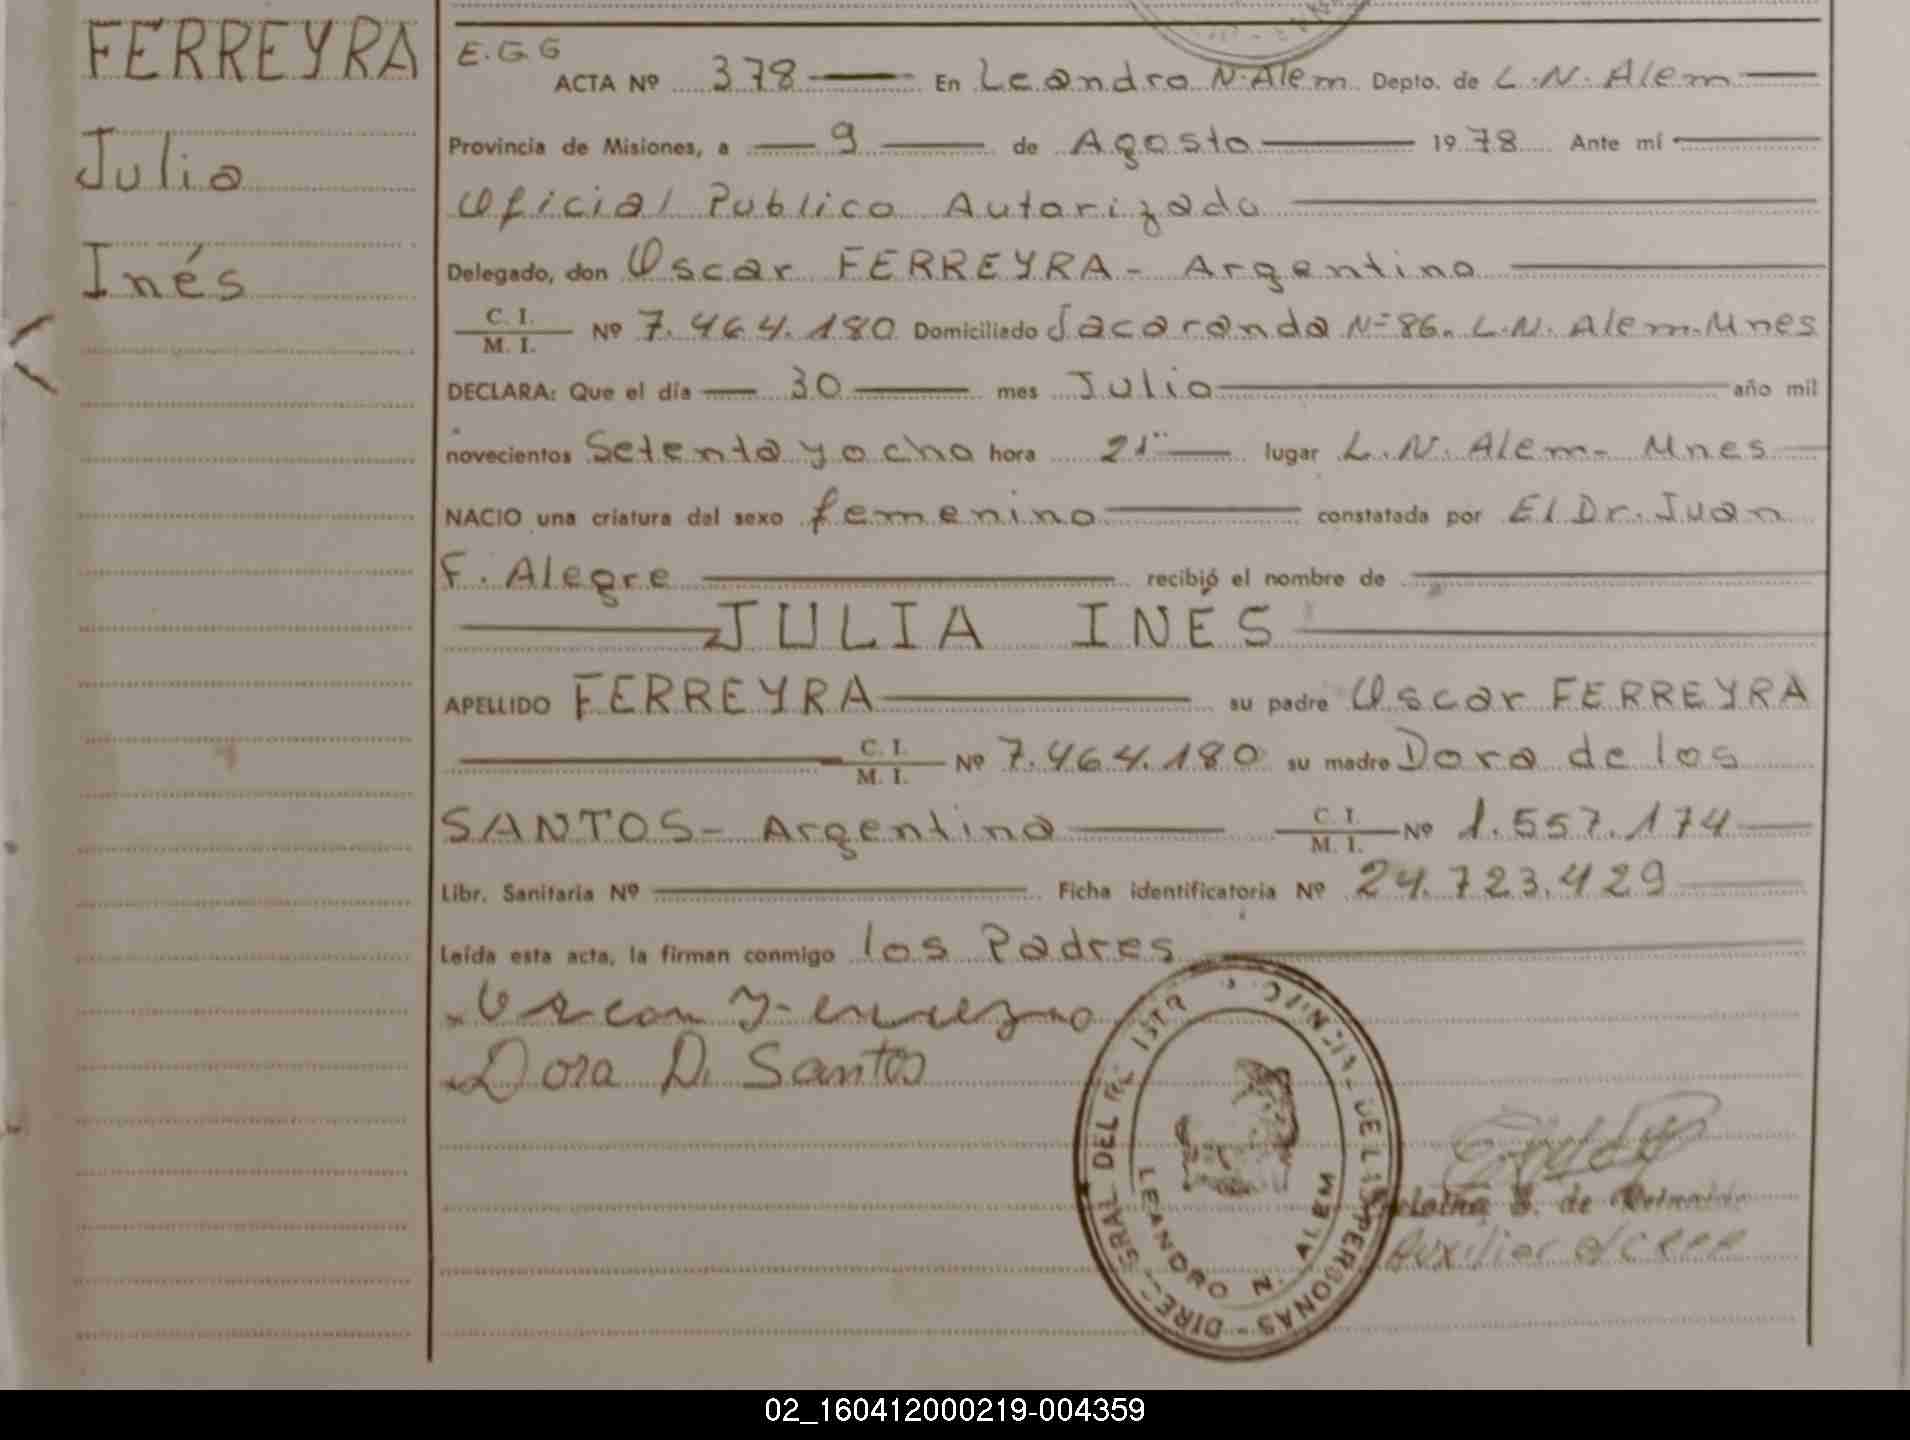 FERREYRA
Julia
Inés
E.G.G
ACTA Nº 378 En Leandro N. Alem Depto. de L. N. Alem
Provincia de Misiones, a 9 de Agosto 1978 Ante mí
Oficial Publico Autorizado
Delegado, don Oscar FERREYRA - Argentino
C. I.
M. I. Nº 7.464.180 Domiciliado Jacaranda Nº 86. L.N. Alem. Mnes
DECLARA: Que el día 30 mes Julio año mil
novecientos Setenta y ocho hora 21 lugar L. N. Alem - Mnes
NACIO una criatura del sexo femenino constatada por El Dr. Juan
F. Alegre recibió el nombre de
JULIA INÉS
APELLIDO FERREYRA su padre Oscar FERREYRA
C. I.
M. I. Nº 7.464.180 su madre Dora de los
SANTOS - Argentina C. I.
M. I. Nº 1.557.174
Libr. Sanitaria Nº Ficha identificatoria Nº 24.723.429
Leída esta acta, la firman conmigo los Padres
Dora D. Santos
GRAL DEL REGISTR PROVINCIAL DE LAS PERSONAS - DIREC
LEANDRO N. ALEM
de
Auxiliar
02_160412000219-004359